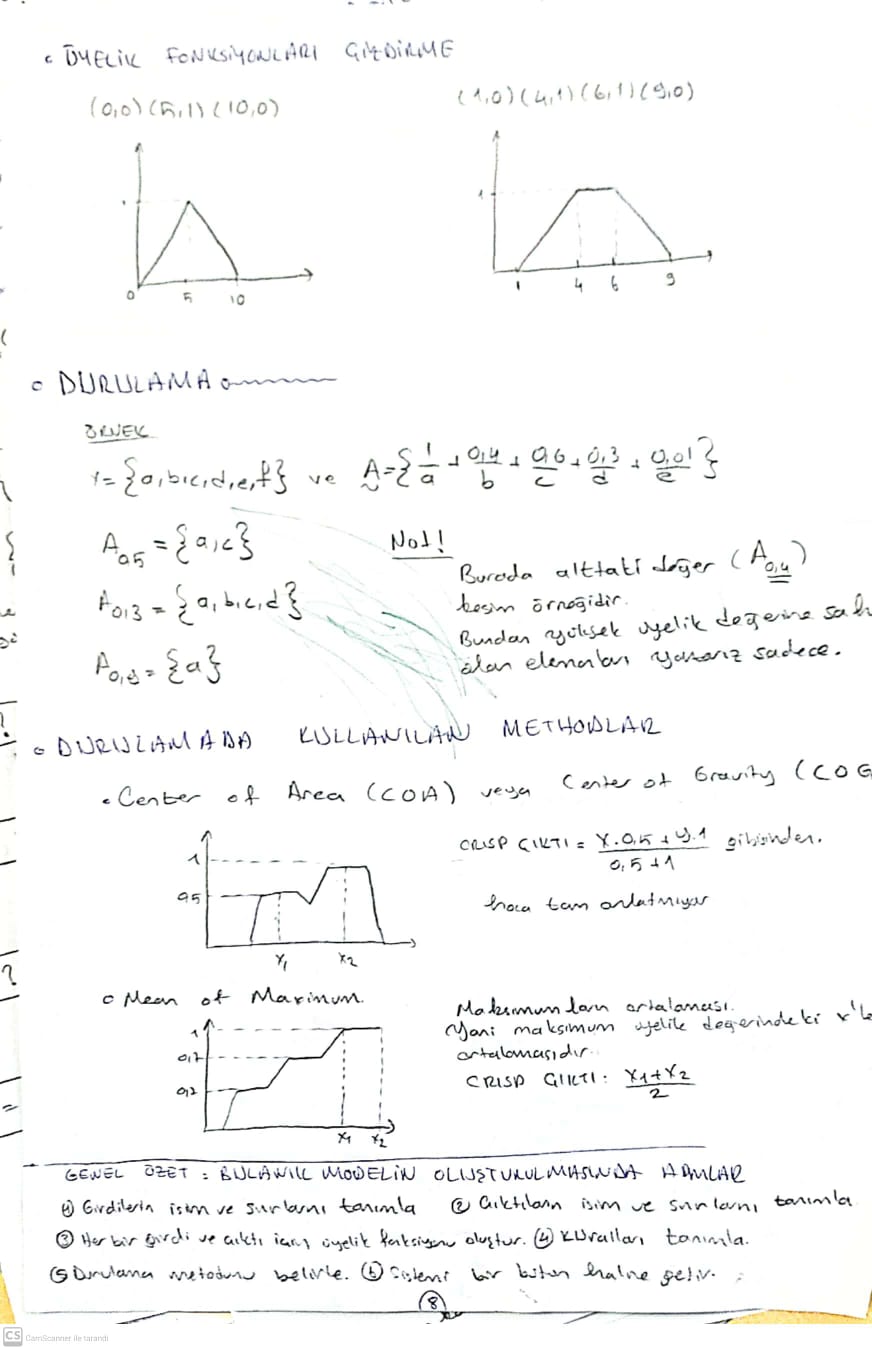 • ÜYELİK FONKSİYONLARI GİZDİRME
(0,0) (5,1) (10,0)
(1,0) (4,1) (6,1) (9,0)
1
0 5 10
1 4 6 9
o DURULAMA
ÖRNEK
Y = {a,b,c,d,e,f} ve A = {1/a + 0,4/b + 0,6/c + 0,3/d + 0,01/e}
A0,5 = {a,c}
A0,3 = {a,b,c,d}
A0,8 = {a}
Not!
Burada alttaki değer (A0,4)
kesim örneğidir.
Bundan yüksek üyelik değerine
olan elemanları yazarız sadece.
o DURULAMADA KULLANILAN METHODLAR
• Center of Area (COA) veya Center of Gravity (COG
1
0,5
X1 X2
CRISP ÇIKTI = X.0,5 + y.1 / 0,5+1 gibisinden.
hoca tam anlatmıyor
o Mean of Maximum.
1
0,7
0,2
X1 X2
Maksimumların ortalaması.
Yani maksimum üyelik değerindeki
ortalamasıdır.
CRISP ÇIKTI: X1+X2 / 2
GENEL ÖZET : BULANIK MODELİN OLUŞTURULMASINDA ADIMLAR
① Girdilerin isim ve sınırlarını tanımla ② Çıktıların isim ve sınırlarını tanımla
③ Her bir girdi ve çıktı için üyelik fonksiyonu oluştur. ④ Kuralları tanımla.
⑤ Durulama metodunu belirle. ⑥ Sistemi bir bütün haline getir.
8
CS CamScanner ile tarandı